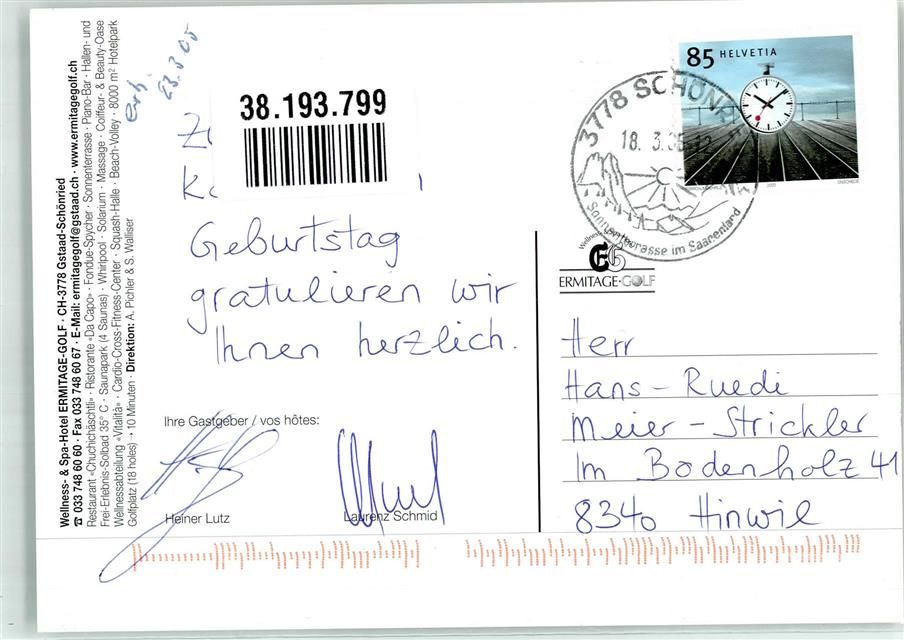 Wellness- & Spa-Hotel ERMITAGE-GOLF · CH-3778 Gstaad-Schönried
☎ 033 748 60 60 · Fax 033 748 60 67 · E-Mail: ermitagegolf@gstaad.ch · www.ermitagegolf.ch
Restaurant «Chuchichäschtli» · Ristorante «Da Capo» · Fondue-Spycher · Sonnenterrasse · Piano-Bar · Hallen- und
Frei-Erlebnis-Solbad 35° C · Saunapark (4 Saunas) · Whirlpool · Solarium · Massage · Coiffeur- & Beauty-Oase
Wellnessabteilung «Vitalità» · Cardio-Cross-Fitness-Center · Squash-Halle · Beach-Volley · 8000 m² Hotelpark
Golfplatz (18 holes) → 10 Minuten · Direktion: A. Pichler & S. Walliser
erh.
23.3.05
38.193.799
Geburtstag
gratulieren wir
Ihnen herzlich.
Ihre Gastgeber / vos hôtes:
Heiner Lutz
Laurenz Schmid
85 HELVETIA
3778 SCHÖNR
18. 3. 05
Sonnenterrasse im Saanenland
Wellness
ERMITAGE·GOLF
Herr
Hans-Ruedi
Meier-Strickler
Im Bodenholz 41
8340 Hinwil